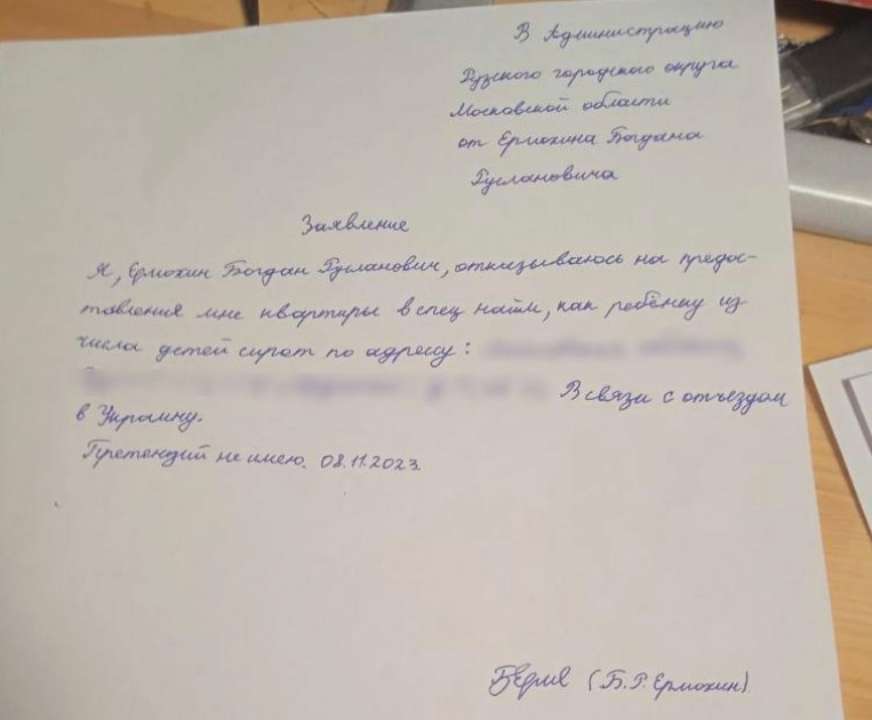 В Администрацию
Рузского городского округа
Московской области
от Ермохина Богдана
Руслановича
Заявление
Я, Ермохин Богдан Русланович, отказываюсь на предос-
тавления мне квартиры в спец найм, как ребёнку из
числа детей сирот по адресу:
В связи с отъездом
в Украину.
Претензий не имею. 08.11.2023.
(Б.Р. Ермохин)